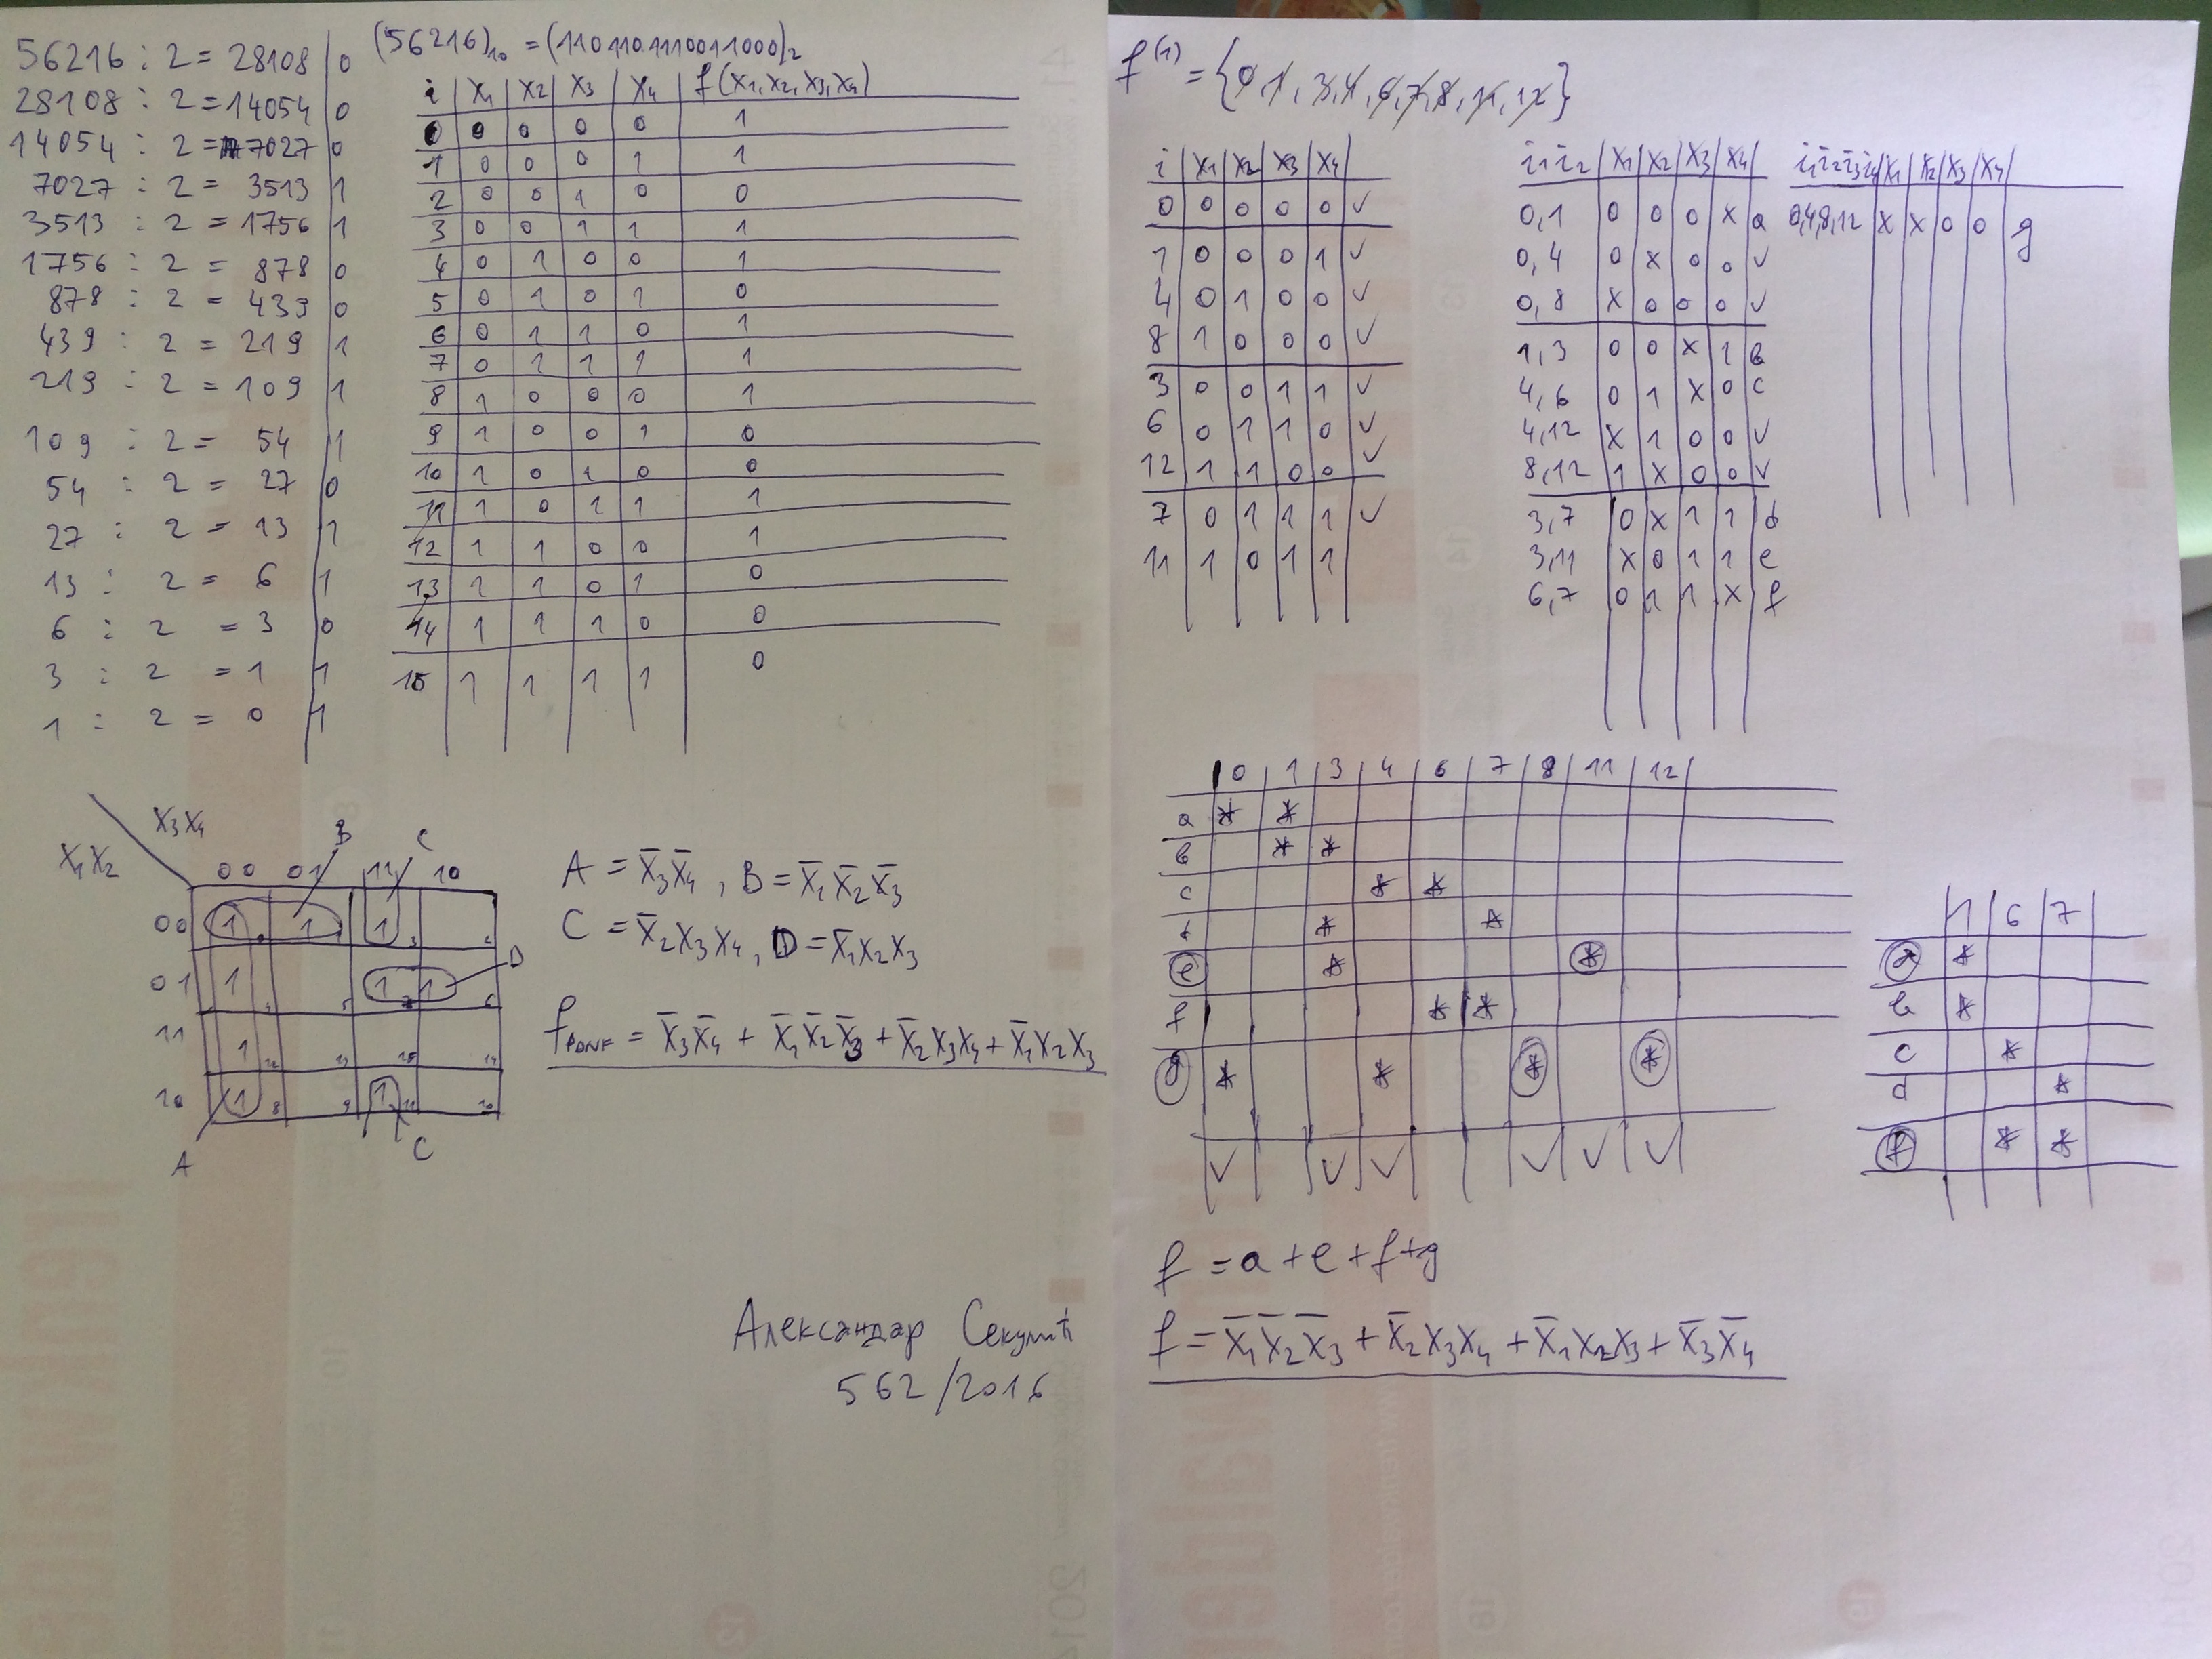 56216 : 2 = 28108 | 0
28108 : 2 = 14054 | 0
14054 : 2 = 7027 | 0
7027 : 2 = 3513 | 1
3513 : 2 = 1756 | 1
1756 : 2 = 878 | 0
878 : 2 = 439 | 0
439 : 2 = 219 | 1
219 : 2 = 109 | 1
109 : 2 = 54 | 1
54 : 2 = 27 | 0
27 : 2 = 13 | 1
13 : 2 = 6 | 1
6 : 2 = 3 | 0
3 : 2 = 1 | 1
1 : 2 = 0 | 1
(56216)₁₀ = (1101101110011000)₂
i | x₁ | x₂ | x₃ | x₄ | f(x₁,x₂,x₃,x₄)
0 | 0 | 0 | 0 | 0 | 1
1 | 0 | 0 | 0 | 1 | 1
2 | 0 | 0 | 1 | 0 | 0
3 | 0 | 0 | 1 | 1 | 1
4 | 0 | 1 | 0 | 0 | 1
5 | 0 | 1 | 0 | 1 | 0
6 | 0 | 1 | 1 | 0 | 1
7 | 0 | 1 | 1 | 1 | 1
8 | 1 | 0 | 0 | 0 | 1
9 | 1 | 0 | 0 | 1 | 0
10 | 1 | 0 | 1 | 0 | 0
11 | 1 | 0 | 1 | 1 | 1
12 | 1 | 1 | 0 | 0 | 1
13 | 1 | 1 | 0 | 1 | 0
14 | 1 | 1 | 1 | 0 | 0
15 | 1 | 1 | 1 | 1 | 0
x₃x₄ B C
x₁x₂ 00 01 11 10
00 1 0 1 1 1 3 2
01 1 4 5 1 7 1 6 D
11 1 12 13 15 14
10 1 8 9 1 11 10
A C
A = x̄₃x̄₄ , B = x̄₁x̄₂x̄₃
C = x̄₂x₃x₄ , D = x̄₁x₂x₃
f PDNF = x̄₃x̄₄ + x̄₁x̄₂x̄₃ + x̄₂x₃x₄ + x̄₁x₂x₃
Александар Секулић
562/2016
f⁽¹⁾ = {0,1,3,4,6,7,8,11,12}
i | x₁ | x₂ | x₃ | x₄ |
0 | 0 | 0 | 0 | 0 | ✓
1 | 0 | 0 | 0 | 1 | ✓
4 | 0 | 1 | 0 | 0 | ✓
8 | 1 | 0 | 0 | 0 | ✓
3 | 0 | 0 | 1 | 1 | ✓
6 | 0 | 1 | 1 | 0 | ✓
12 | 1 | 1 | 0 | 0 | ✓
7 | 0 | 1 | 1 | 1 | ✓
11 | 1 | 0 | 1 | 1 |
i₁i₂ | x₁ | x₂ | x₃ | x₄
0,1 | 0 | 0 | 0 | x | a
0,4 | 0 | x | 0 | 0 | ✓
0,8 | x | 0 | 0 | 0 | ✓
1,3 | 0 | 0 | x | 1 | b
4,6 | 0 | 1 | x | 0 | c
4,12 | x | 1 | 0 | 0 | ✓
8,12 | 1 | x | 0 | 0 | ✓
3,7 | 0 | x | 1 | 1 | d
3,11 | x | 0 | 1 | 1 | e
6,7 | 0 | 1 | 1 | x | f
i₁i₂i₃i₄ | x₁ | x₂ | x₃ | x₄ |
0,4,8,12 | x | x | 0 | 0 | g
0 | 1 | 3 | 4 | 6 | 7 | 8 | 11 | 12
a | * | * | | | | | | |
b | | * | * | | | | | |
c | | | | * | * | | | |
d | | | * | | | * | | |
e | | | * | | | | | * |
f | | | | | * | * | | |
g | * | | | * | | | * | | *
✓ | | ✓ | ✓ | | | ✓ | ✓ | ✓
1 | 6 | 7
a | * | |
b | * | |
c | | * |
d | | | *
f | | * | *
f = a + e + f + g
f = x̄₁x̄₂x̄₃ + x̄₂x₃x₄ + x̄₁x₂x₃ + x̄₃x̄₄